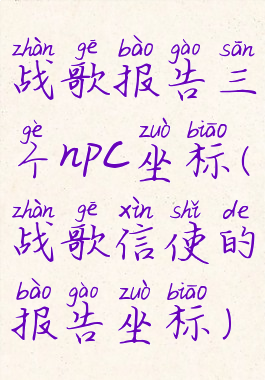 zhàn gē bào gào sān
战歌报告三
gè zuò biāo
个npc坐标(
zhàn gē xìn shǐ de
战歌信使的
bào gào zuò biāo
报告坐标)